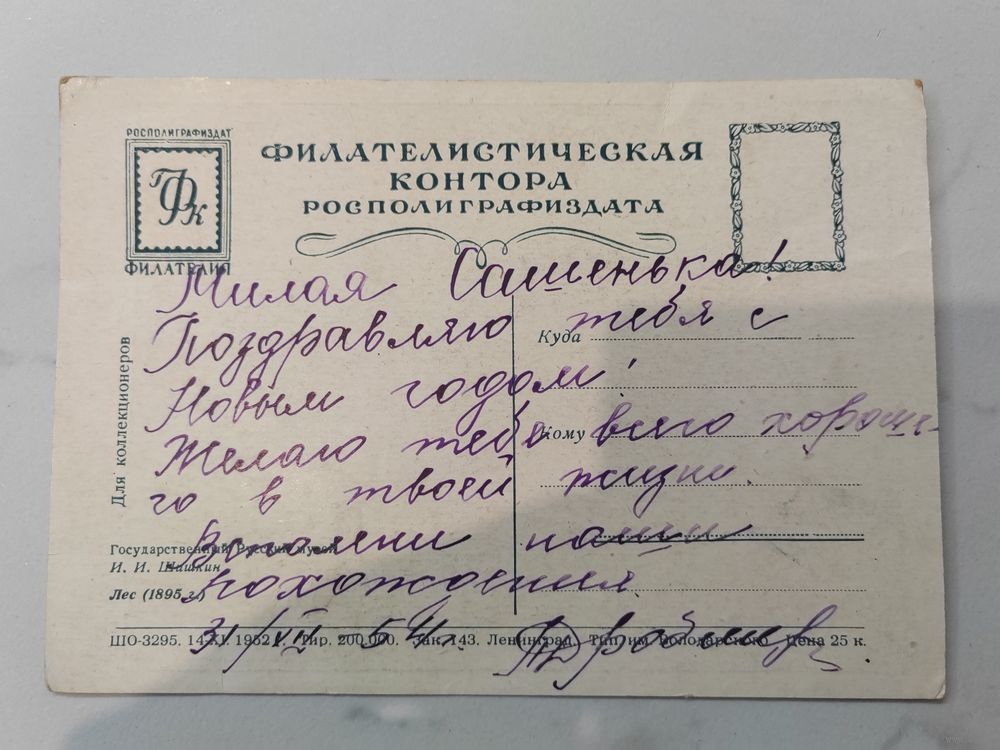 РОСПОЛИГРАФИЗДАТ
ГФК
ФИЛАТЕЛИЯ
ФИЛАТЕЛИСТИЧЕСКАЯ
КОНТОРА
РОСПОЛИГРАФИЗДАТА
Милая Сашенька!
Поздравляю тебя с
Новым годом!
Желаю тебе всего хороше-
го в твоей жизни.
Вспомни наши
похождения
31/XII 54 г.
Для коллекционеров
Куда
Кому
Государственный Русский музей
И. И. Шишкин
Лес (1895 г.)
ШО-3295. 14-XI. 1952 г. Тир. 200.000. Зак. 143. Ленинград. Тип. им. Володарского. Цена 25 к.